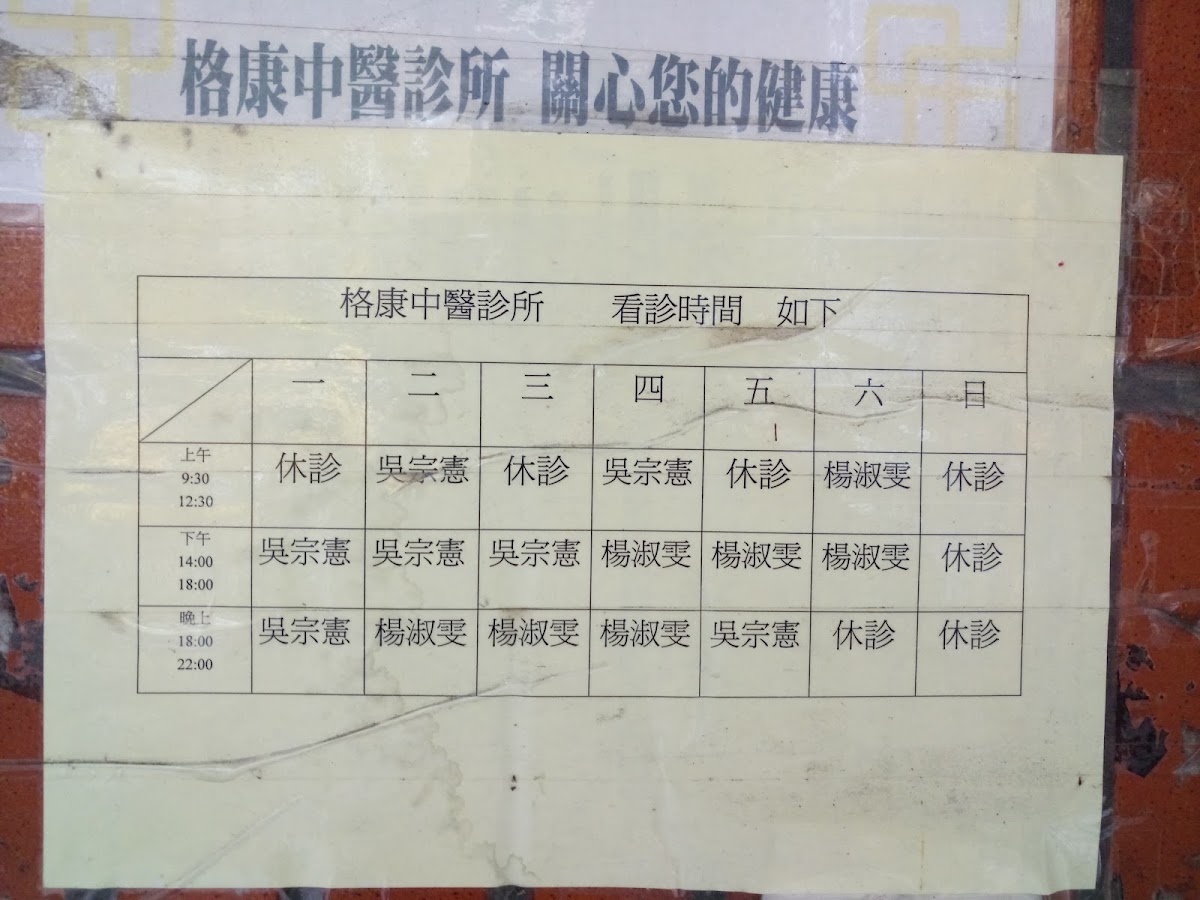 格康中醫診所 關心您的健康
格康中醫診所 看診時間 如下
一 二 三 四 五 六 日
上午 9:30 12:30 休診 吳宗憲 休診 吳宗憲 休診 楊淑雯 休診
下午 14:00 18:00 吳宗憲 吳宗憲 吳宗憲 楊淑雯 楊淑雯 楊淑雯 休診
晚上 18:00 22:00 吳宗憲 楊淑雯 楊淑雯 楊淑雯 吳宗憲 休診 休診